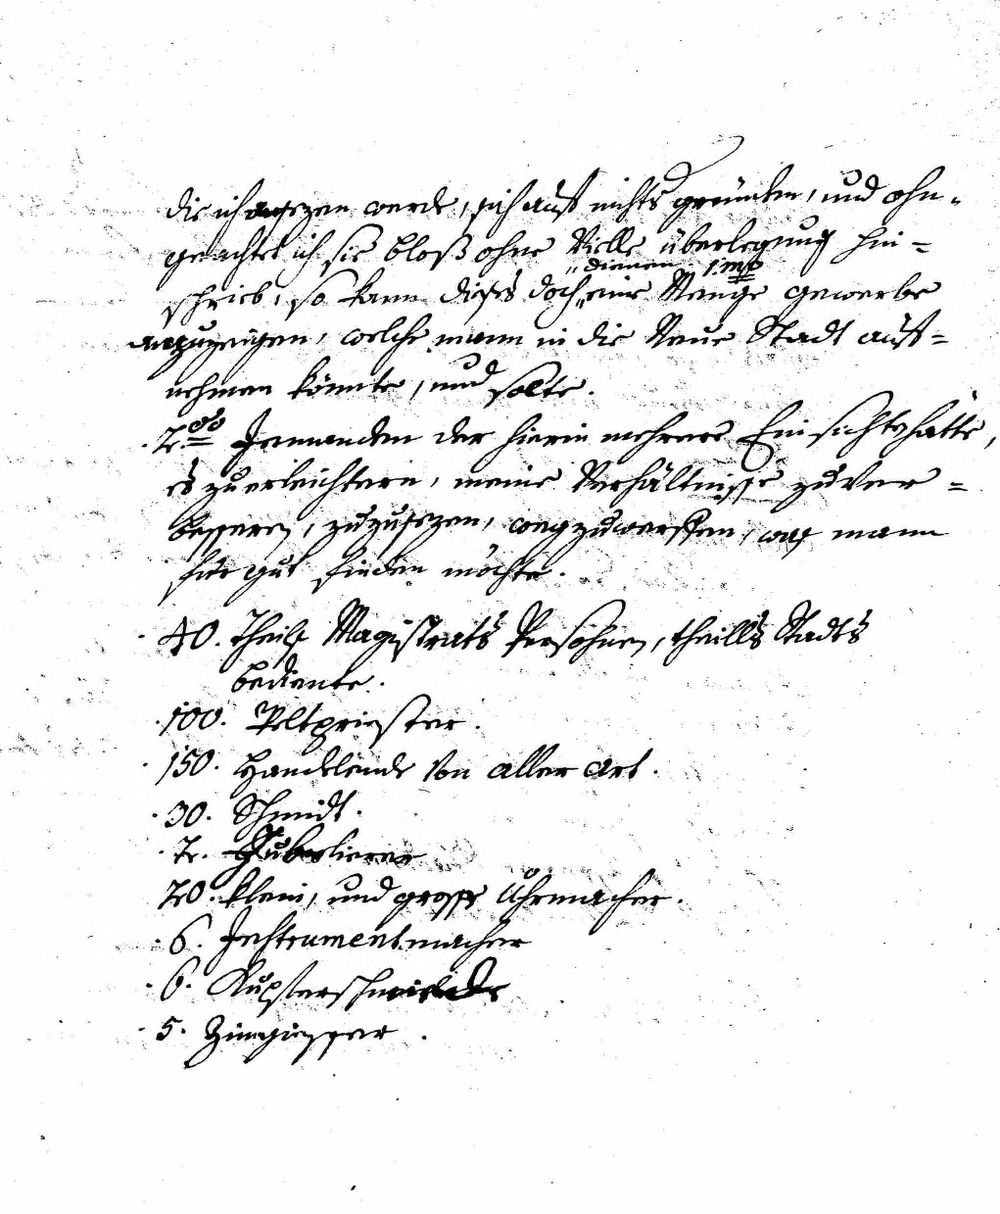 die ich angezen werde, sich auf nichts gründen, und ohn-
geachtet ich sie bloß ohne Vielle überlegung hin=
dienen 1mo
schrieb, so kann dieses doch eine Menge gewerbe
anzuzeigen, welche mann in die Neue Stadt auf=
nehmen könnte, und solte.
2do Jemanden der hierin mehrere Einsicht hätte,
es zu erleichtern, meine Verhältnisse zu ver=
bessern, zuzusezen, wegzuwerffen, was mann
für gut finden möchte.
40. Theils Magistrats Persohnen, theills Stadts
bediente.
100. Weltpriester.
150. Handelende von aller Art.
30. Schmidt.
2. Jubelierer
20. klein, und grosse Uhrmacher.
6. Instrumentmacher
6. Kupferschmide
5. Zingiesser.